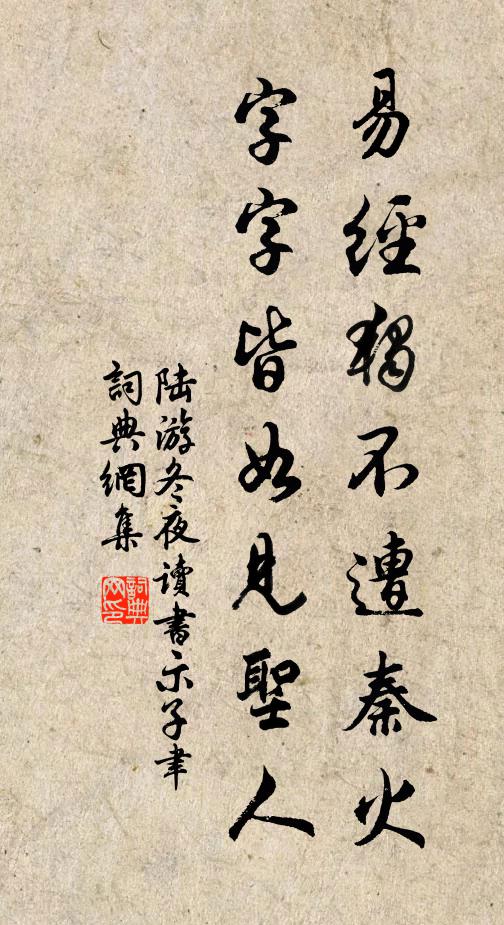 易經獨不遭秦火
字字皆如見聖人
陸游冬夜讀書示子聿
詞典網集
詞典
网印